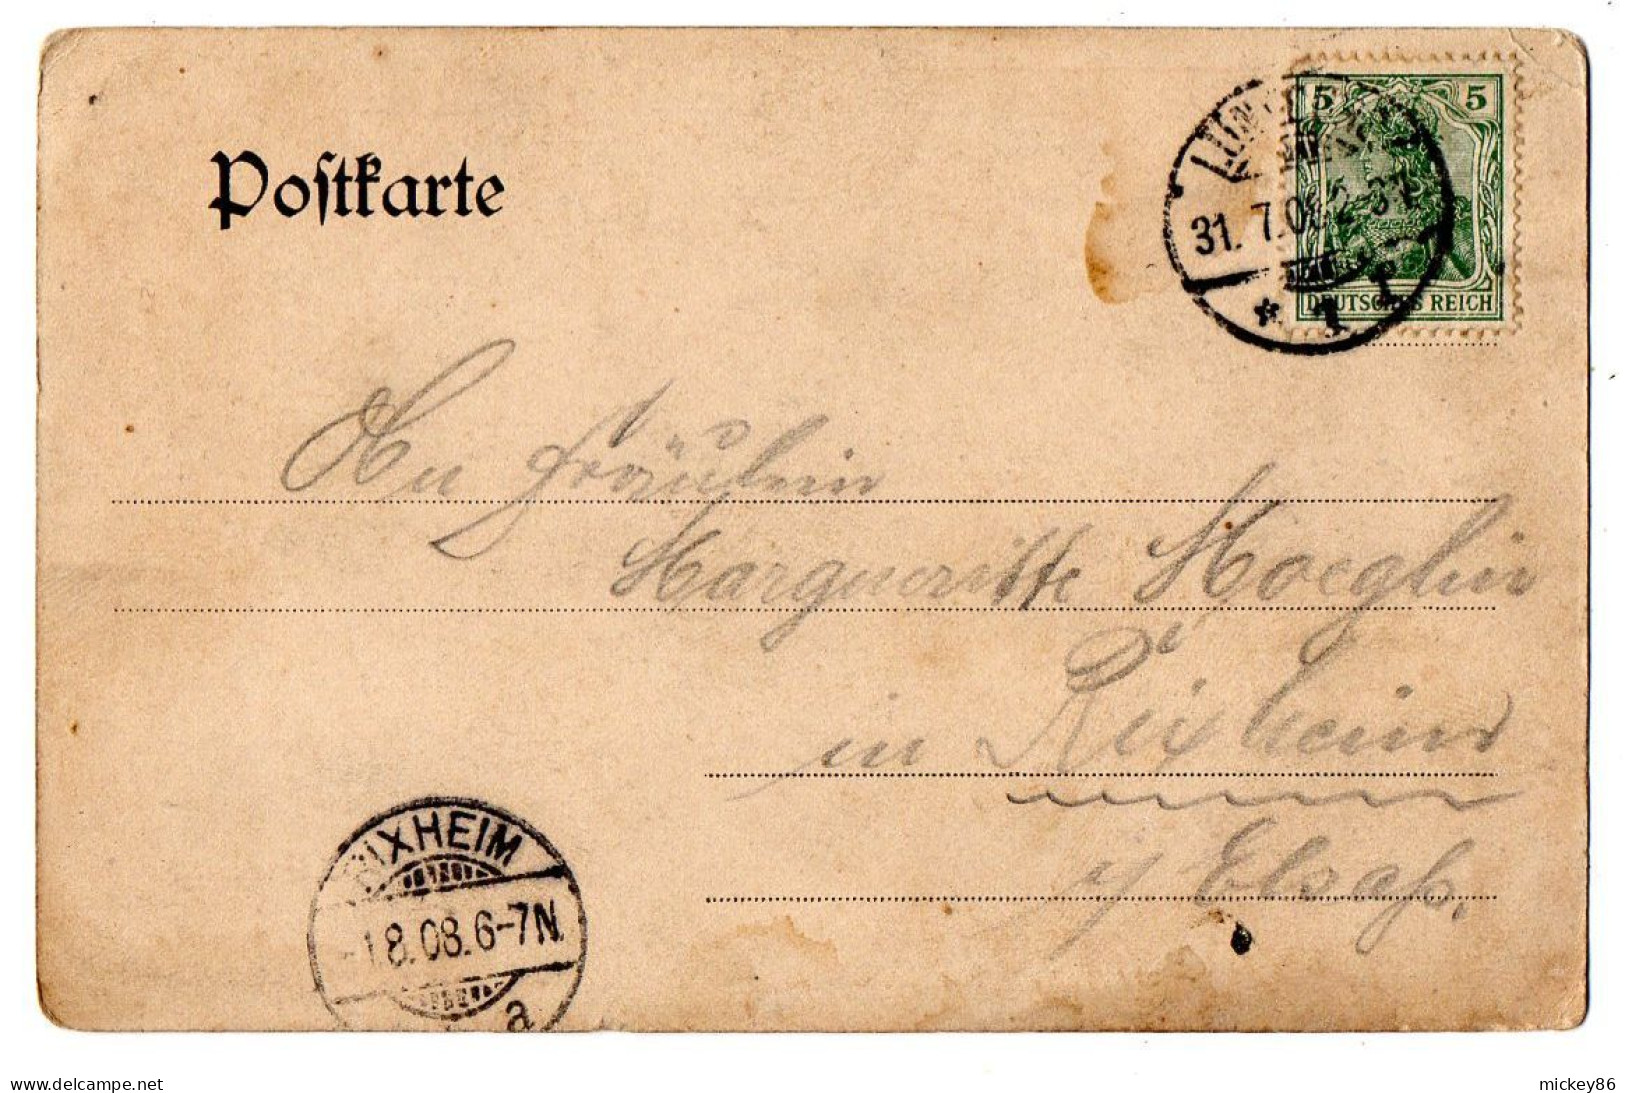 Postkarte
5 5
31. 7. 08
DEUTSCHES REICH
* 1
An Fräulein
Margueritte Moeglin
in Rixheim
i/ Elsaß.
RIXHEIM
1.8.08.6-7N.
a
www.delcampe.net
mickey86